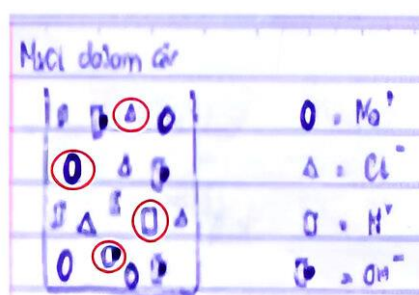 NaCl dalam air
= Na⁺
= Cl⁻
= H⁺
= OH⁻